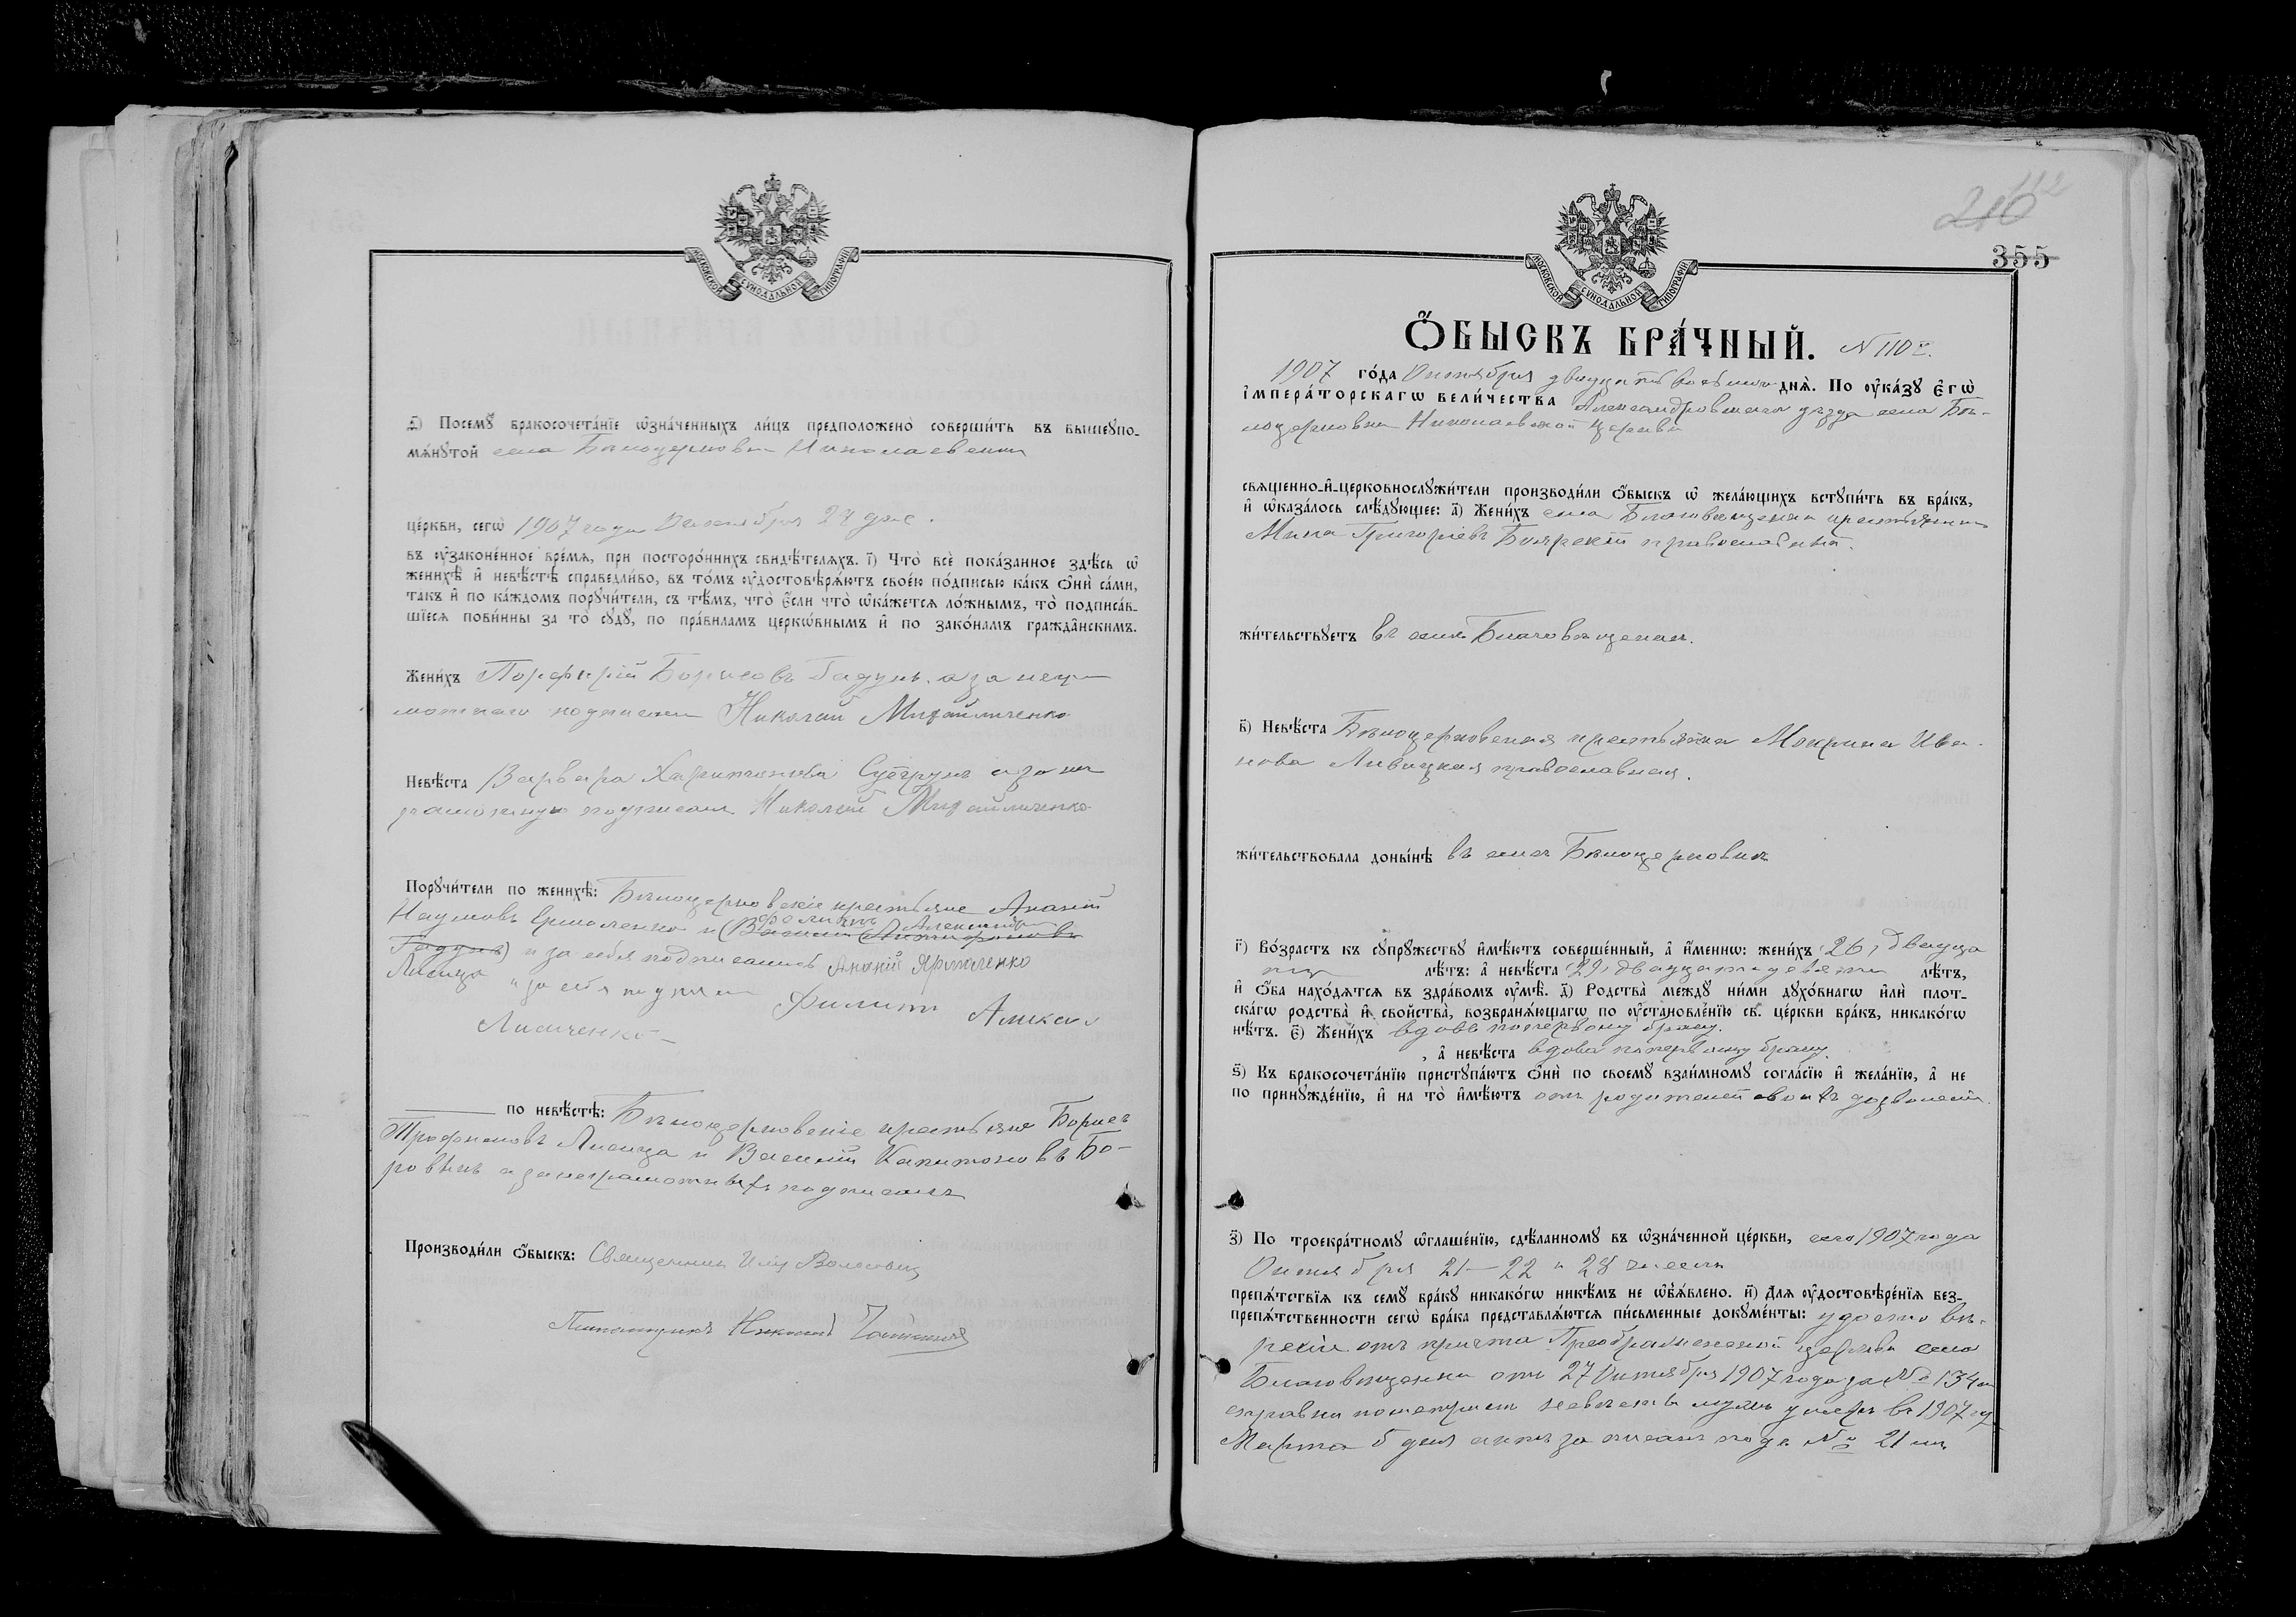 МОСКОВСКОЙ СѴНОДАЛЬНОЙ ТИПОГРАФІИ
Ѳ) Посемꙋ бракосочета́нїе ѡзна́ченныхъ ли́цъ предположено̀ соверши́ть въ вышеꙋпо-
мѧ́нꙋтой села Бѣлоцерковки Николаевской
це́ркви, сегѡ̀ 1907 года Октября 28 дня.
въ ᲂу҆зако́не́нное вре́мѧ, при посторо́ннихъ свидѣ́телѧхъ. і҃) Что̀ всѐ пока́занное здѣ́сь ѡ҆
женихѣ̀ и҆ невѣ́стѣ справедли́во, въ то́мъ ᲂу҆достовѣрѧ́ютъ свое́ю по́дписью ка́къ ѻ҆нѝ са́ми,
та́къ и҆ по ка́ждомъ порꙋчи́тели, съ тѣ́мъ, что̀ є҆́сли что̀ ѡ҆ка́жетсѧ ло́жнымъ, то̀ подписа́в-
шїесѧ пови́нны за то̀ сꙋдꙋ̀, по пра́виламъ церкѡ́внымъ и҆ по зако́намъ гражда̑нскимъ.
Жени́хъ Порфирій Борисовъ Гадунъ, а за негра-
мотнаго подписалъ Николай Михайличенко
Невѣ́ста Варвара Харитонова а за не
грамотную подписалъ Николай Михайличенко
Порꙋчи́тели по женихѣ̀: Бѣлоцерковскіе крестьяне Ананій
Наумовъ Ермоленко и (Филиппъ Александр
Гадунъ) и за себя подписались Ананій Ярмоленко
Лисица и за себя подписал Филипп Алексан
Лисиченко
по невѣ́стѣ: Бѣлоцерковскіе крестьяне Борисъ
Трофимовъ Лисица и Василій Капитоновъ Бо-
ровикъ а за неграмотныхъ подписалъ
Производи́ли ѻ҆́быскъ: Священникъ Илія
Псаломщикъ
216
355
МОСКОВСКОЙ СѴНОДАЛЬНОЙ ТИПОГРАФІИ
Ѻ҆́БЫСКЪ БРА́ЧНЫЙ. N 110й.
1907 го́да Октября двадцать восьмого днѧ̀. По ᲂу҆ка́зꙋ Є҆гѡ̀
І҆мпера́торскагѡ вели́чества Александровскаго уѣзда села Бѣ-
лоцерковки Николаевской церкви
сващенно-и҆-церковнослꙋжи́тели производи́ли ѻ҆́быскъ ѡ҆ жела́ющихъ встꙋпи́ть въ бра́къ,
и҆ ѡ҆каза́лось слѣ́дꙋющее: а҃) Жени́хъ села Благовѣщенки крестьянинъ
Мина Григоріевъ Боярскій православный.
жи́тельствꙋетъ въ селѣ Благовѣщенкѣ.
в҃) Невѣ́ста Бѣлоцерковская крестьянка Мокрина Ива-
нова Ливицкая православная.
жи́тельствовала донынѣ̀ въ селѣ Бѣлоцерковкѣ
г҃) Во́зрастъ къ сꙋпрꙋ́жествꙋ и҆мѣ́ютъ соверше́нный, а҆ и҆́меннѡ: жени́хъ 26, двадца
лѣ́тъ: а҆ невѣ́ста 29, двадцати девяти лѣ́тъ,
и҆ ѻ҆́ба нахо́дѧтсѧ въ здра́вомъ ᲂу҆мѣ̀. д҃) Родства̀ междꙋ̀ ни́ми дꙋхо́внагѡ и҆лѝ плот-
ска́гѡ родства̀ и҆ сво́йства̀, возбранѧ́ющагѡ по ᲂу҆становле́нїю св. це́ркви бра́къ, никако́гѡ
нѣ́тъ. є҃) Жени́хъ вдовъ по первому браку.
, а҆ невѣ́ста вдова по первому браку.
ѕ҃) Къ бракосочета́нїю пристꙋпа́ютъ ѻ҆нѝ по своемꙋ̀ взаи́мномꙋ согла́сїю и҆ жела́нїю, а҆ не
по принꙋжде́нїю, и҆ на то̀ и҆мѣ́ютъ отъ родителей своихъ дозволеніе.
з҃) По троекра́тномꙋ ѡ҆глаше́нїю, сдѣ́ланномꙋ въ ѡ҆зна́ченной це́ркви, сего 1907 года
Октября 21 – 22 и 28 числа
препѧ́тствїѧ къ семꙋ̀ бра́кꙋ никако́гѡ никѣ́мъ не ѡ҆б̾ѧ́влено. и҃) Для ᲂу҆достовѣре́нїѧ без-
препѧ́тственности сегѡ̀ бра́ка представлѧ́ютсѧ пи́сьменные докꙋме́нты: удостовѣ-
реніе отъ причта Преображенской церкви села
Благовѣщенки отъ 27 Октября 1907 года за № 134 и
справки по метрикѣ невѣсты мужъ умеръ въ 1907 г.
Марта 5 дня актъ записанъ подъ № 21 мъ